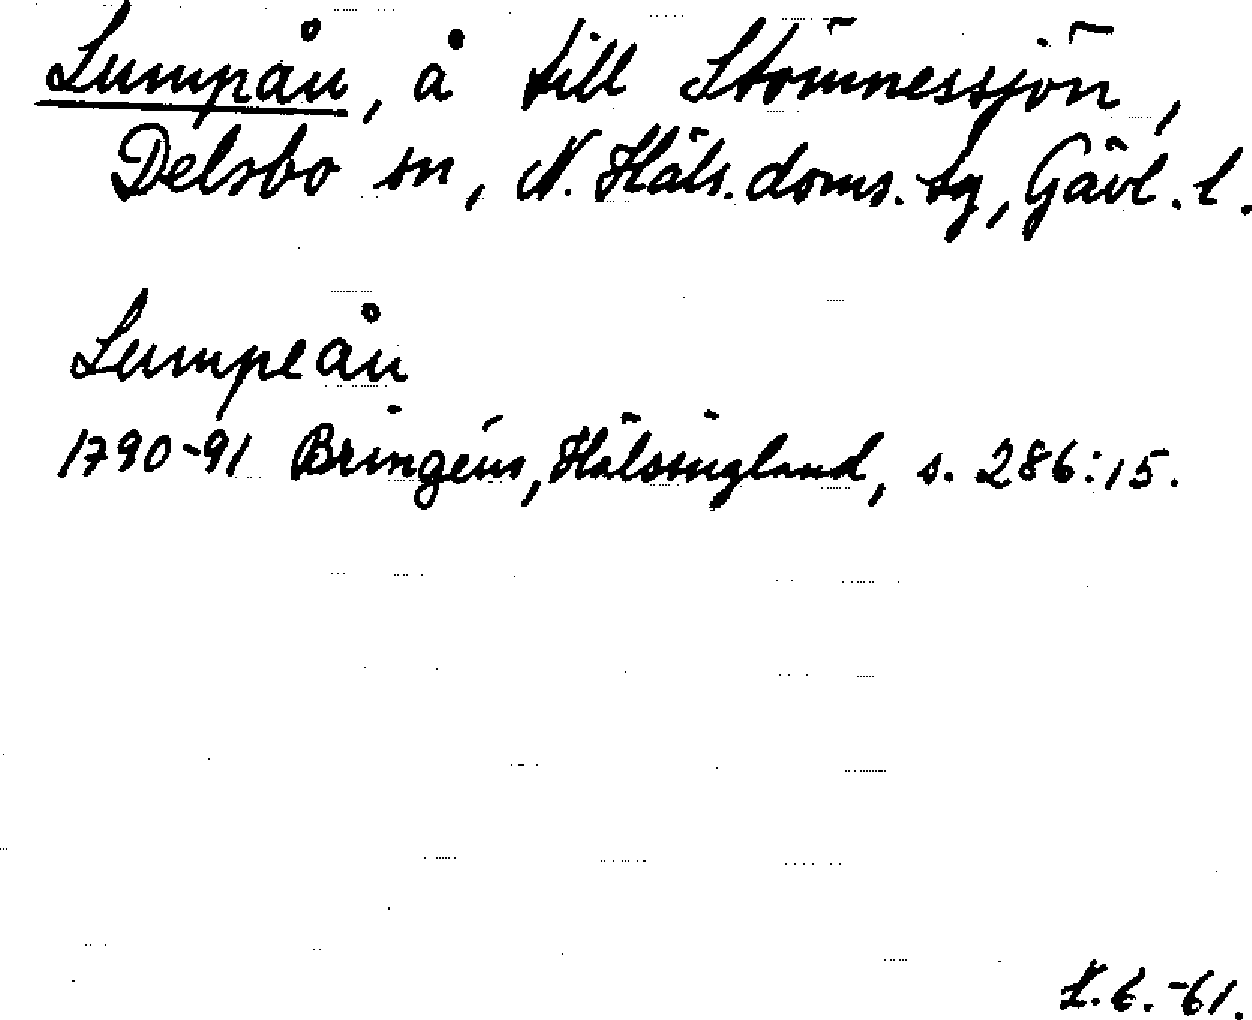 Lumpån, å till Stömnessjön,
Delsbo sn, N. Häls. doms.-sg, Gävl. l.
Lumpeån
1790-91 Bringéus, Hälsingland, s. 286:15.
K.E.-61.